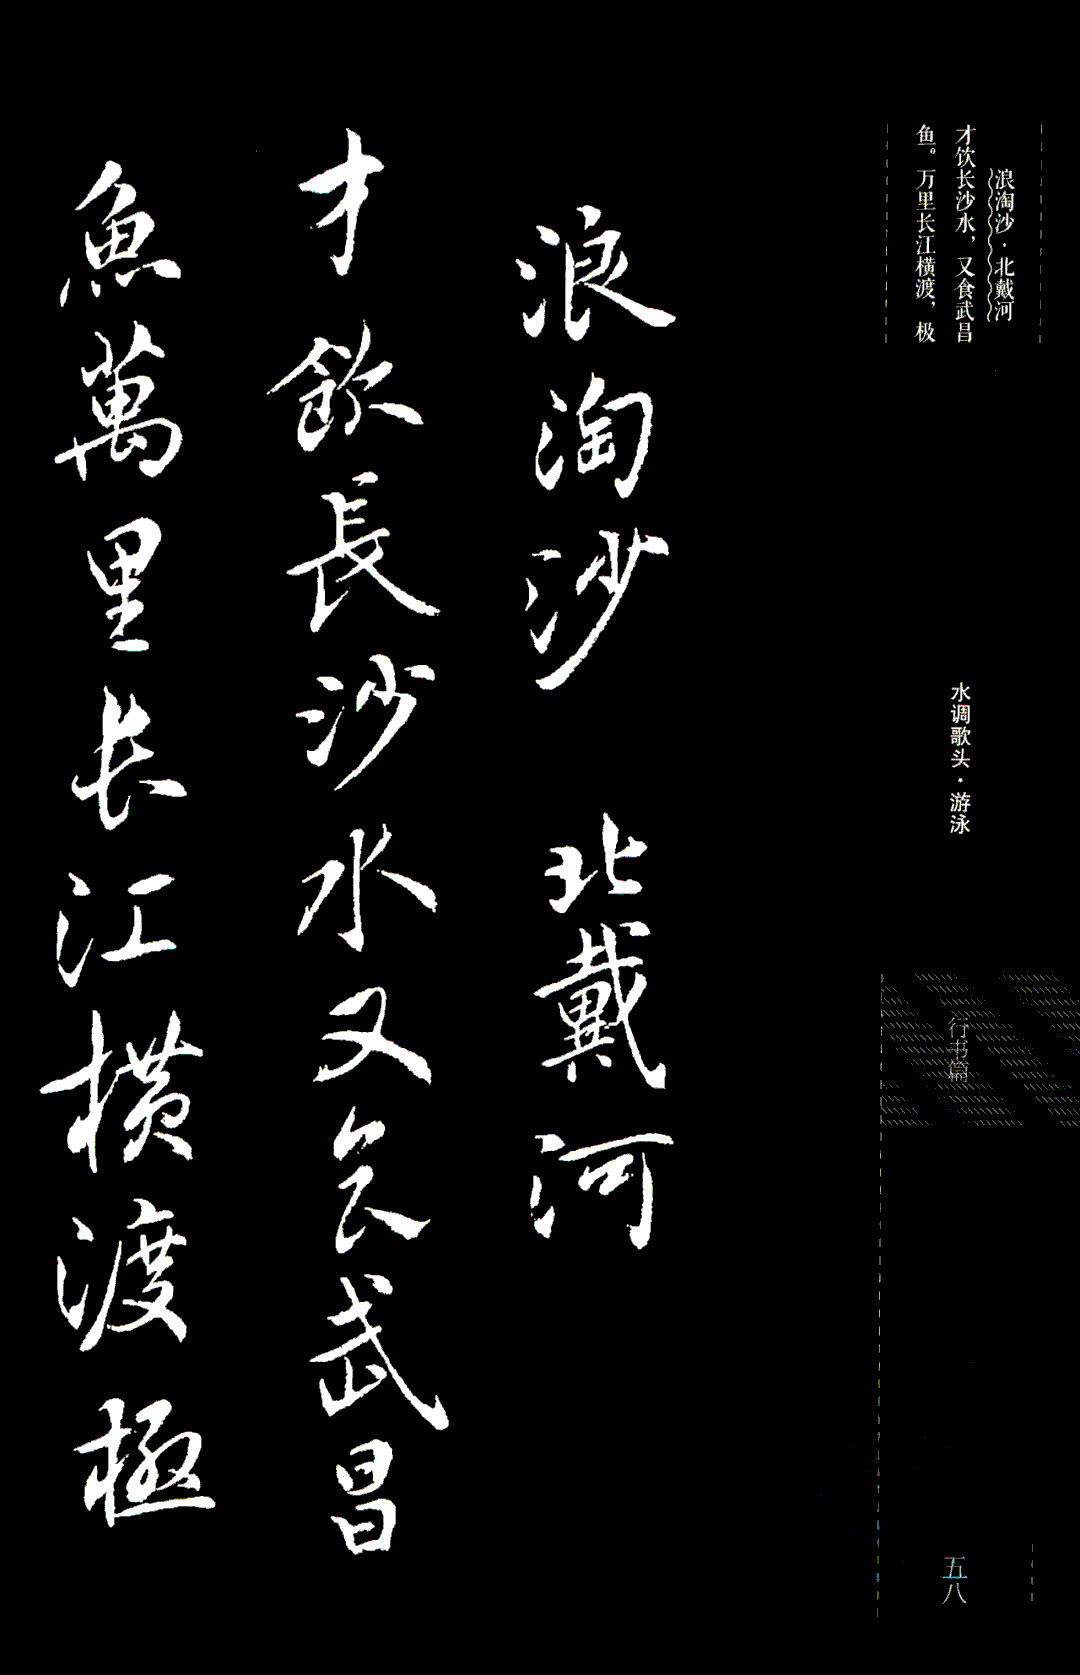 浪淘沙·北戴河
才饮长沙水，又食武昌
鱼。万里长江横渡，极
水调歌头·游泳
行书篇
五八
浪淘沙 北戴河
才飲長沙水又食武昌
魚萬里长江横渡極